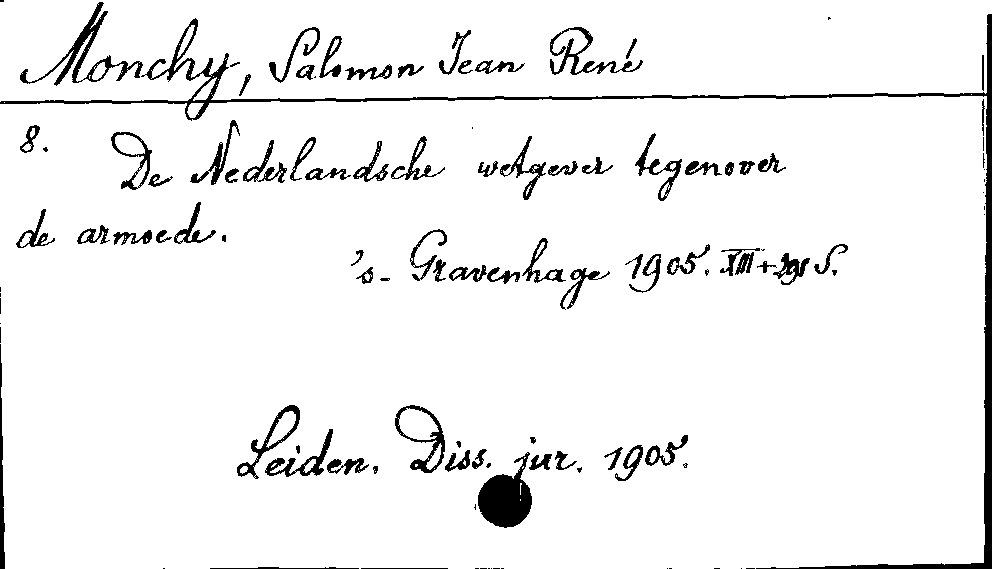 Monchy, Salomon Jean René
8. De Nederlandsche wetgever tegenover
de armoede.
's-Gravenhage 1905. XIII + S.
Leiden. Diss. jur. 1905.